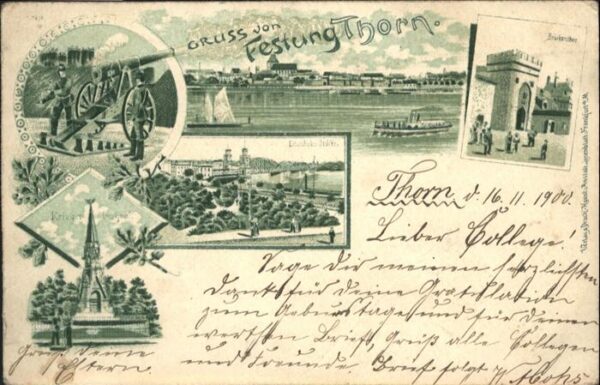 Gruss von
Festung Thorn.
Brückenthor
Thorn d. 16. 11. 1900.
Lieber College!
Sage dir meinen herzlichsten
Dank für deine Gratulation
zum Geburtstage und für Deinen
werthen Brief. Grüß alle Collegen
und Freunde. Brief folgt
Grüß deine
Eltern.